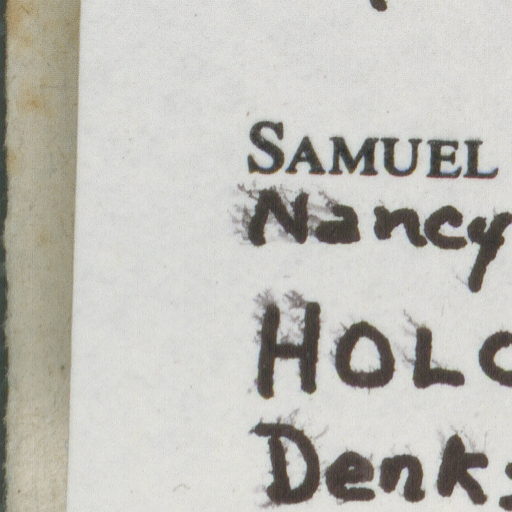 SAMUEL
Nancy
HOLO
Denk